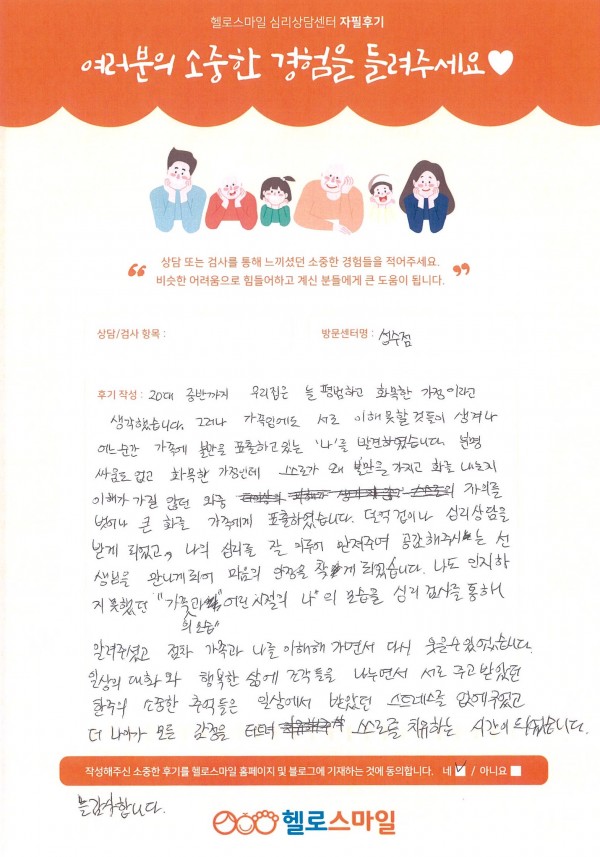 헬로스마일 심리상담센터 자필후기
여러분의 소중한 경험을 들려주세요♥
상담 또는 검사를 통해 느끼셨던 소중한 경험들을 적어주세요.
“ 비슷한 어려움으로 힘들어하고 계신 분들에게 큰 도움이 됩니다. ”
상담/검사 항목 : 방문센터명 : 성수점
후기 작성 : 20대 중반까지 우리집은 늘 평범하고 화목한 가정이라고
생각했습니다. 그러나 가족임에도 서로 이해 못할 것들이 생겨나
어느순간 가족에 불만을 표출하고 있는 '나'를 발견하였습니다. 분명
싸움도 없고 화목한 가정인데 쓰로가 왜 불만을 가지고 화를 내는지
이해가 가질 않던 와중 자의를
벗어나 큰 화를 가족에게 표출하였습니다. 심리상담을
받게 되었고, 나의 심리를 잘 어루어 만져주며 공감해주시는 선
생님을 만나게 되어 마음의 안정을 찾게 되었습니다. 나도 인지하
지 못했던 "가족과 어린시절의 나"의 모습을 심리 검사를 통해
의 모습"
알려주셨고 점차 가족과 나를 이해해 가면서 다시 웃을수 있었습니다.
일상의 대화와 행복한 삶에 조각들을 나누면서 서로 주고 받았던
한주의 소중한 추억들은 일상에서 받았던 스트레스를 없애주었고
더 나아가 모든 감정을 터트려 쓰로를 치유하는 시간이 되었습니다.
작성해주신 소중한 후기를 헬로스마일 홈페이지 및 블로그에 기재하는 것에 동의합니다. 네 ✓ / 아니요
감사합니다.
헬로스마일